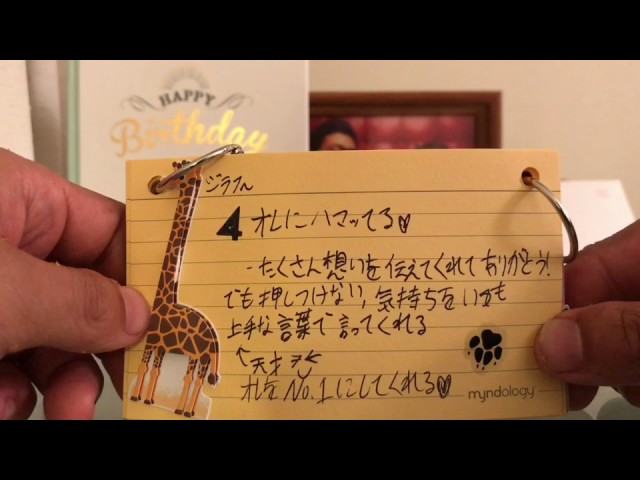 HAPPY
Birthday
ジラフん
4 オレにハマッてる♡
-たくさん想いを伝えてくれてありがとう!
でも押しつけない、気持ちをいつも
上手な言葉で言ってくれる
↑天才
オレを No.1にしてくれる♡
myndology